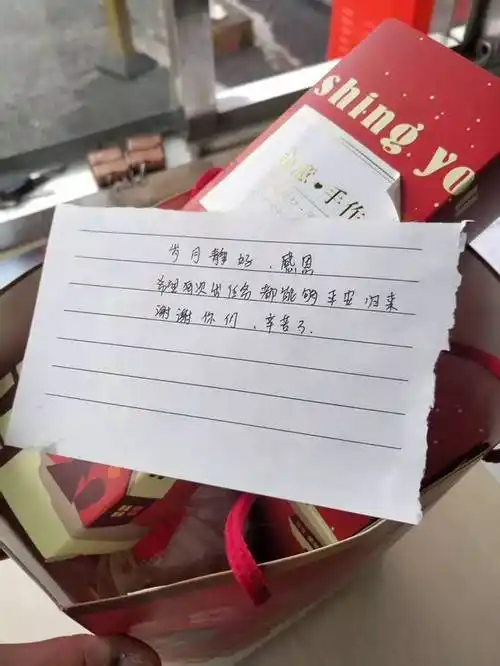 shing yo
心意·手作
岁月静好、感恩
希望每次出任务都能够平安归来
谢谢你们、辛苦了.